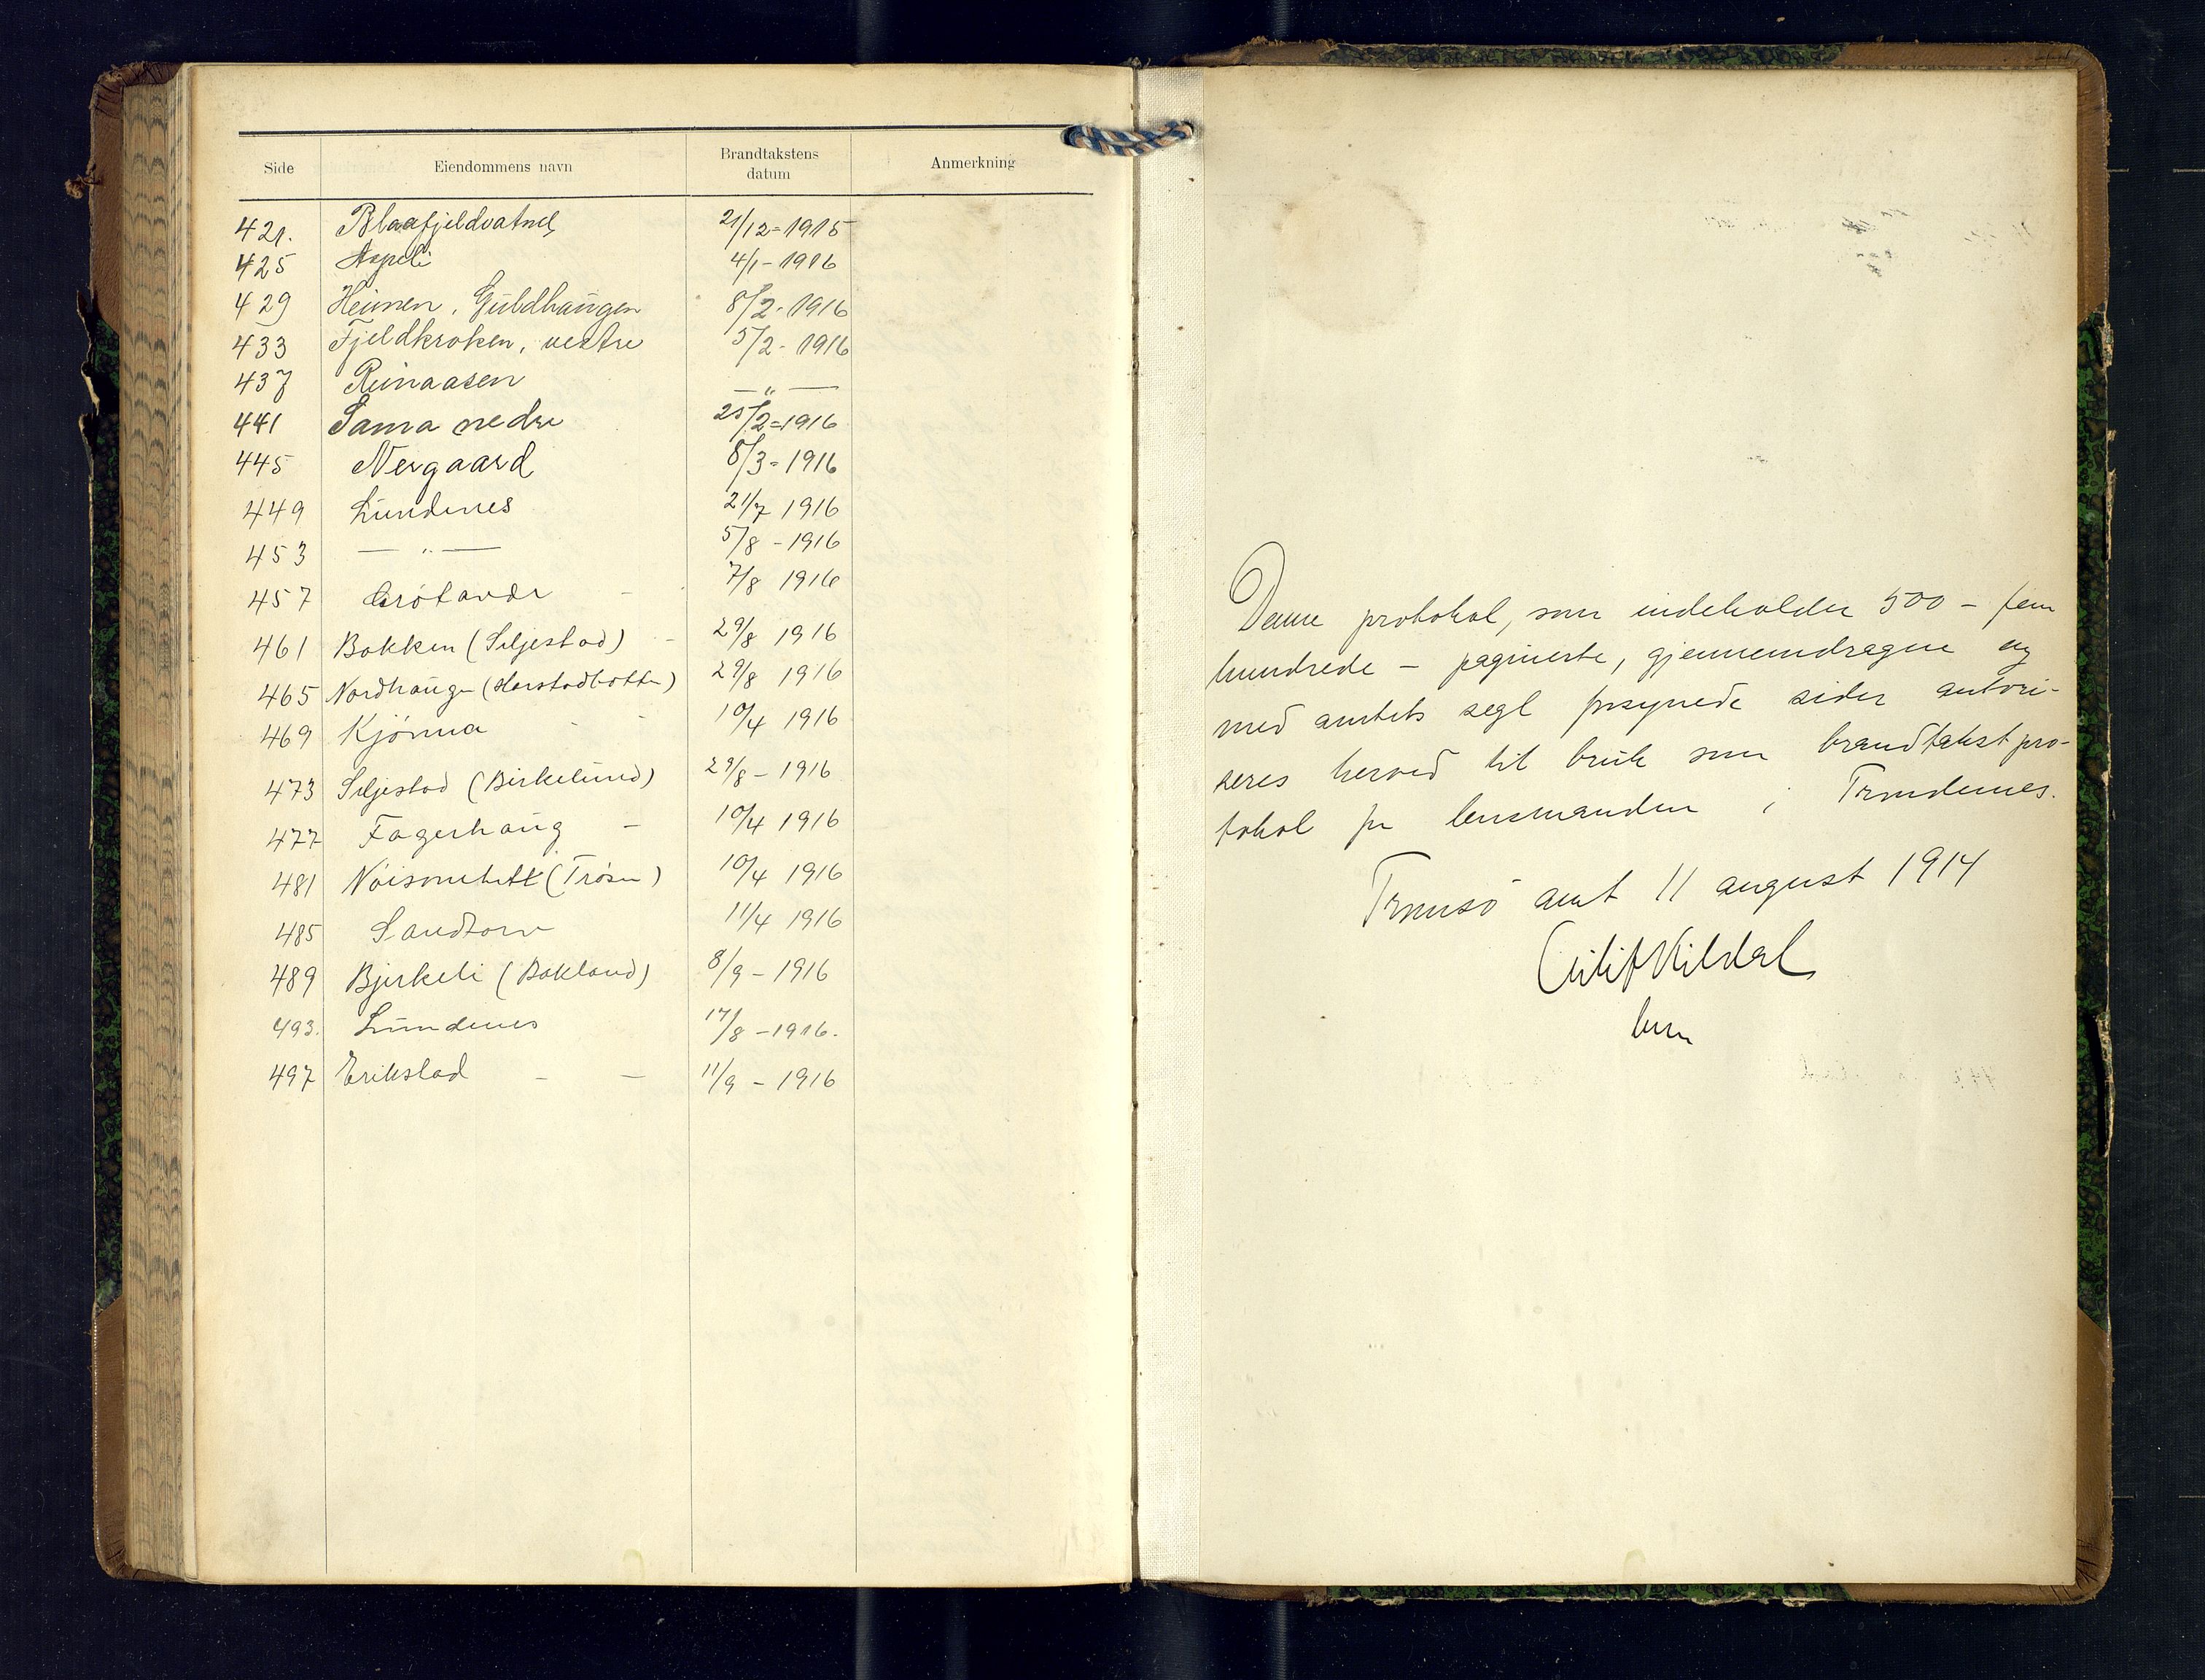 Side Eiendommens navn Brandtakstens datum Anmerkning
421. Blaafjeldvatnet 21/12=1915
425 Aspeli 4/1-1916
429 Heimen, Guldhaugen 8/2-1916
433 Fjeldkroken, vestre 5/2-1916
437 Reinaasen —"—
441 Sama nedre 25/2=1916
445 Nergaard 8/3=1916
449 Lundenes 21/7 1916
453 —"— 5/8-1916
457 Grötavær 7/8 1916
461 Bakken (Seljestad) - 29/8 1916
465 Nordhaugen (Harstadbotten) 29/8 1916
469 Kjönna - - 10/4 1916
473 Seljestad (Birkelund) 29/8-1916
477 Fagerhaug - 10/4 1916
481 Nöisomhett (Trösen) 10/4 1916
485 Sandtorv 11/4 1916
489 Bjerkeli (Bakland) 8/9-1916
493. Lundenes 17/8-1916.
497 Erikstad - - 11/9-1916
Denne protokol, som indeholder 500 - fem
hundrede - paginerte, gjennemdragne og
med amtets segl forsynede sider autori-
seres herved til bruk som brandtakstpro-
tokol for lensmanden i Trondenes.
Tromsö amt 11 august 1914
Kildal